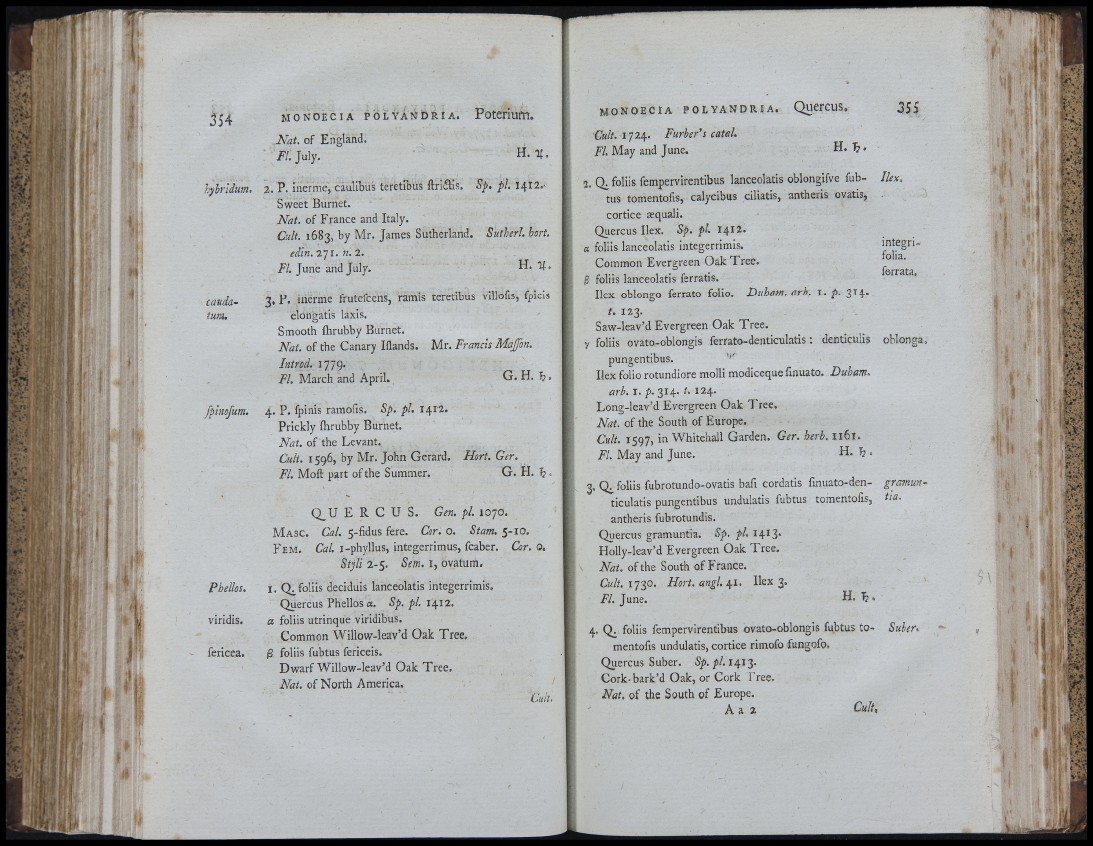 354 MONOECIA POLYANDRIA. Poterium.
Nat. of England.
Fl. July. H. ♃.
hybridum. 2. P. inerme, caulibus teretibus ſtrictis. Sp. pl. 1412.
Sweet Burnet.
Nat. of France and Italy.
Cult. 1683, by Mr. James Sutherland. Sutherl. hort.
edin. 271. n. 2.
Fl. June and July. H. ♃.
cauda- 3. P. inerme fruteſcens, ramis teretibus villoſis, ſpicis
tum. elongatis laxis.
Smooth ſhrubby Burnet.
Nat. of the Canary Iſlands. Mr. Francis Maſſon.
Introd. 1779.
Fl. March and April. G. H. ♄.
ſpinoſum. 4. P. ſpinis ramoſis. Sp. pl. 1412.
Prickly ſhrubby Burnet.
Nat. of the Levant.
Cult. 1596, by Mr. John Gerard. Hort. Ger.
Fl. Moſt part of the Summer. G. H. ♄.
QUERCUS. Gen. pl. 1070.
MASC. Cal. 5-fidus fere. Cor. 0. Stam. 5-10.
FEM. Cal. 1-phyllus, integerrimus, ſcaber. Cor. 0.
Styli 2-5. Sem. 1, ovatum.
Phellos. 1. Q. foliis deciduis lanceolatis integerrimis.
Quercus Phellos α. Sp. pl. 1412.
viridis. α foliis utrinque viridibus.
Common Willow-leav'd Oak Tree.
ſericea. β foliis ſubtus ſericeis.
Dwarf Willow-leav'd Oak Tree.
Nat. of North America.
Cult.
MONOECIA POLYANDRIA. Quercus. 355
Cult. 1724. Furber's catal.
Fl. May and June. H. ♄.
2. Q. foliis ſempervirentibus lanceolatis oblongiſve ſub- Ilex.
tus tomentoſis, calycibus ciliatis, antheris ovatis,
cortice æquali.
Quercus Ilex. Sp. pl. 1412.
α foliis lanceolatis integerrimis. integri-
Common Evergreen Oak Tree. folia.
β foliis lanceolatis ſerratis. ſerrata.
Ilex oblongo ſerrato folio. Duham. arb. 1. p. 314.
t. 123.
Saw-leav'd Evergreen Oak Tree.
γ foliis ovato-oblongis ſerrato-denticulatis: denticulis oblonga.
pungentibus.
Ilex folio rotundiore molli modiceque ſinuato. Duham.
arb. 1. p. 314. t. 124.
Long-leav'd Evergreen Oak Tree.
Nat. of the South of Europe.
Cult. 1597, in Whitehall Garden. Ger. herb. 1161.
Fl. May and June. H. ♄.
3. Q. foliis ſubrotundo-ovatis baſi cordatis ſinuato-den- gramun-
ticulatis pungentibus undulatis ſubtus tomentoſis, tia.
antheris ſubrotundis.
Quercus gramuntia. Sp. pl. 1413.
Holly-leav'd Evergreen Oak Tree.
Nat. of the South of France.
Cult. 1730. Hort. angl. 41. Ilex 3.
Fl. June. H. ♄.
4. Q. foliis ſempervirentibus ovato-oblongis ſubtus to- Suber.
mentoſis undulatis, cortice rimoſo fungoſo.
Quercus Suber. Sp. pl. 1413.
Cork-bark'd Oak, or Cork Tree.
Nat. of the South of Europe.
A a 2 Cult.